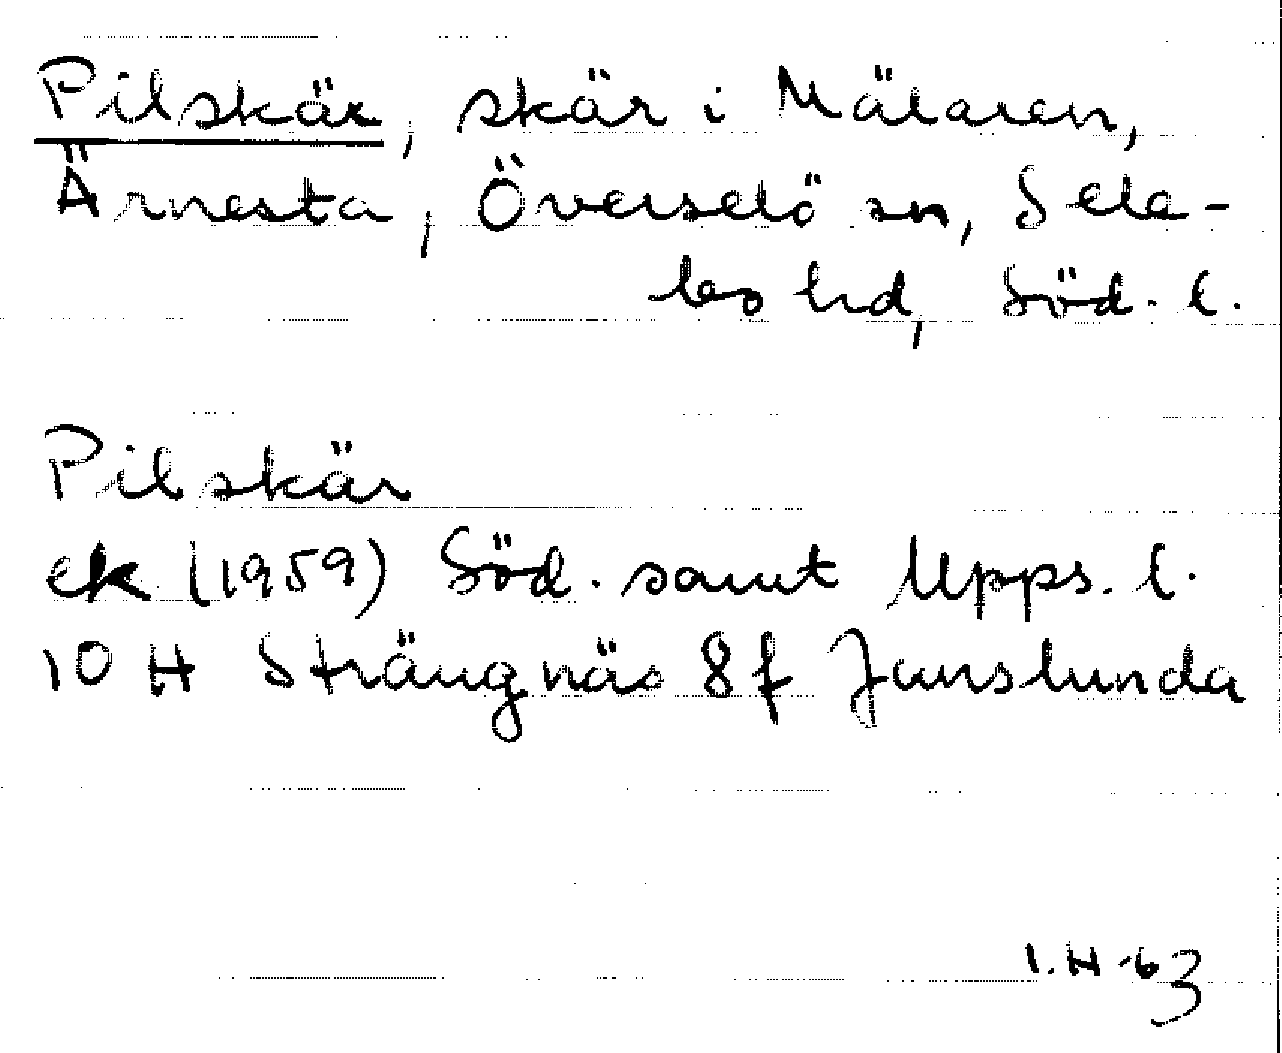 Pilskär, skär i Mälaren,
Ärnesta, Överselö sn, Sele-
bo hd, Söd. l.
Pilskär
ek (1959) Söd. samt Upps. l.
10 H Strängnäs 8f Junslunda
I.H-63